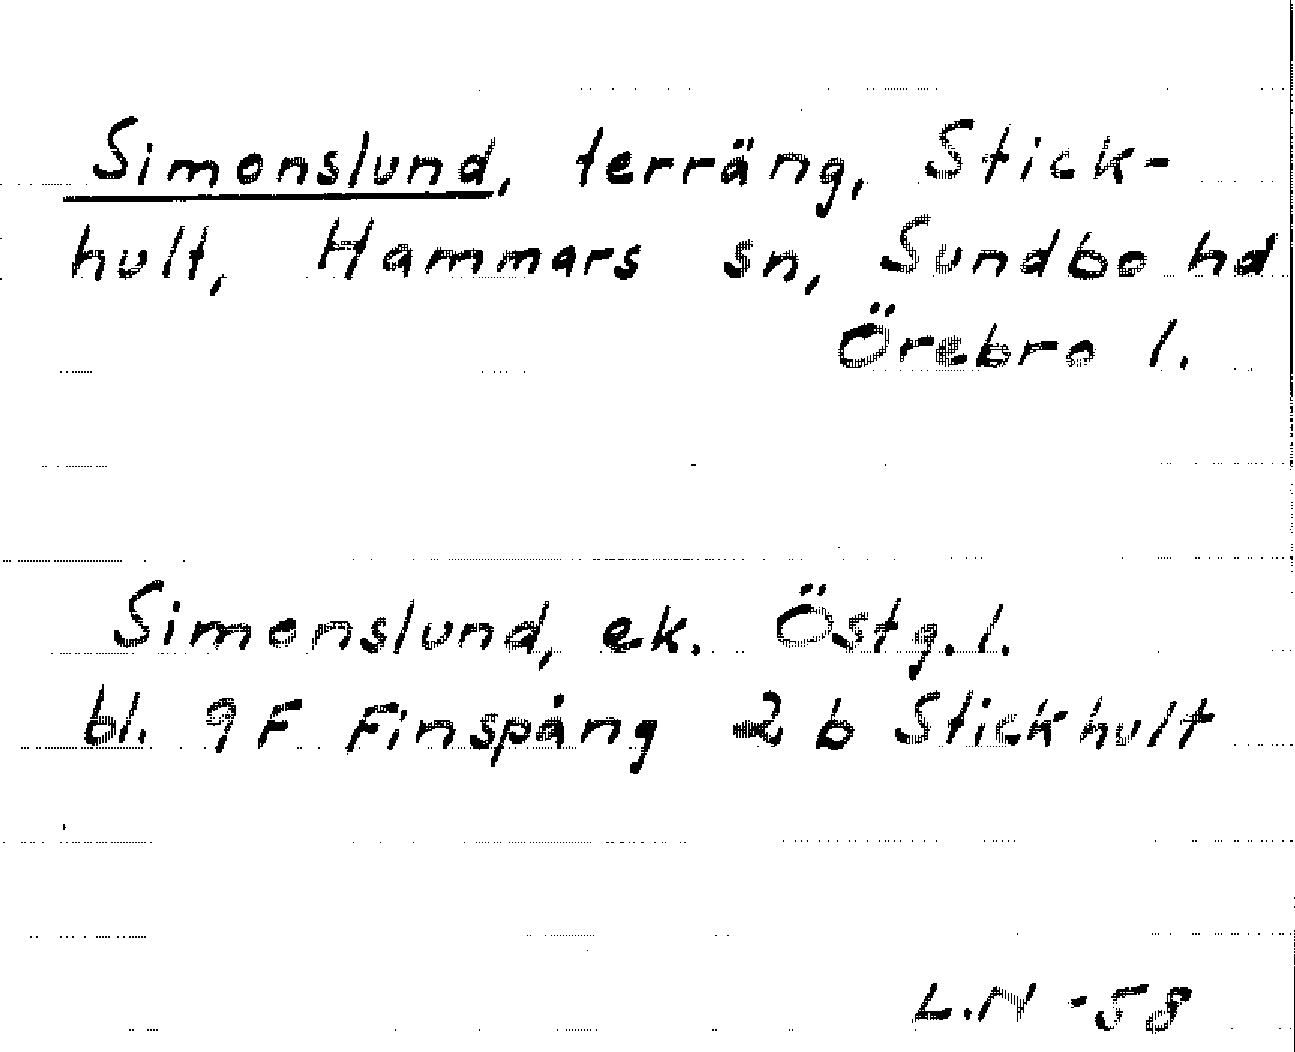 Simonslund, terräng, Stick-
hult, Hammars sn, Sundbo hd
Örebro l.
Simonslund, ek. Östg. l.
bl. 9F Finspång 2b Stickhult
L.N -58